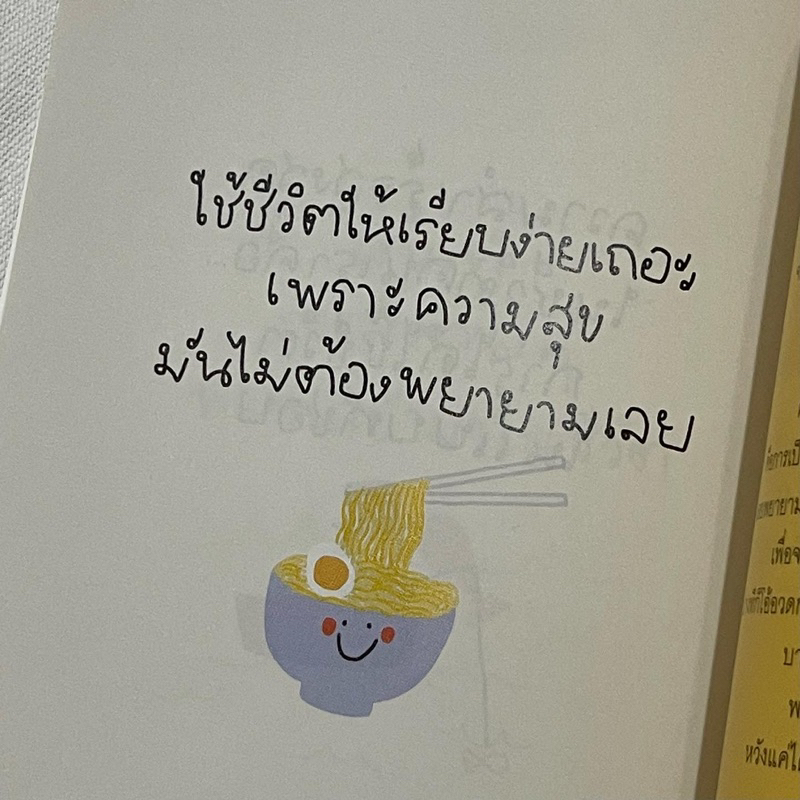 ใช้ชีวิตให้เรียบง่ายเถอะ
เพราะความสุข
มันไม่ต้องพยายามเลย
เพื่อจ
หวังแค่ได้